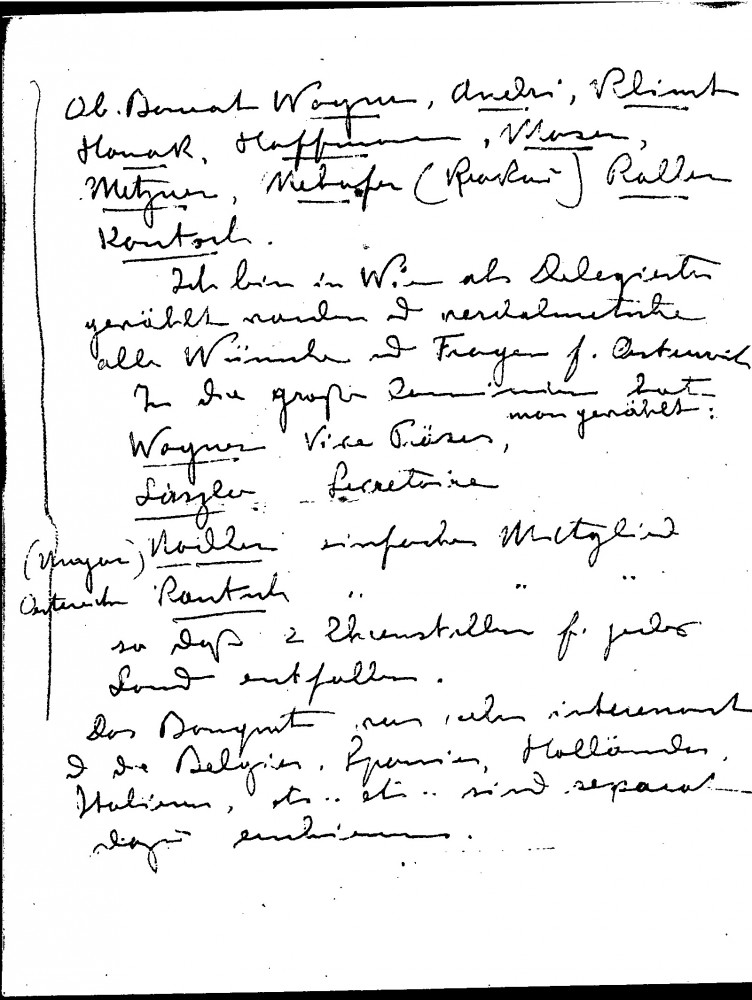 Ob. Baurat Wagner, Andri, Klimt
Hanak, Hoffmann, Moser,
Metzner, Mehofer (Krakau) Roller
Kautsch.
Ich bin in Wien als Delegierter
gewählt worden
alle Wünsche und Fragen f. Österreich
In die große Commission hat
man gewählt:
Wagner Vice Präses,
László Secretaire
(Ungar) einfaches Mitglied
Österreicher Kautsch " " "
so daß 2 Ehrenstellen f. jedes
Land entfallen.
Das Banquet war sehr interessant
d die Belgier, Spanier, Holländer,
Italiener, etc.. etc.. sind separat
dazu erschienen.